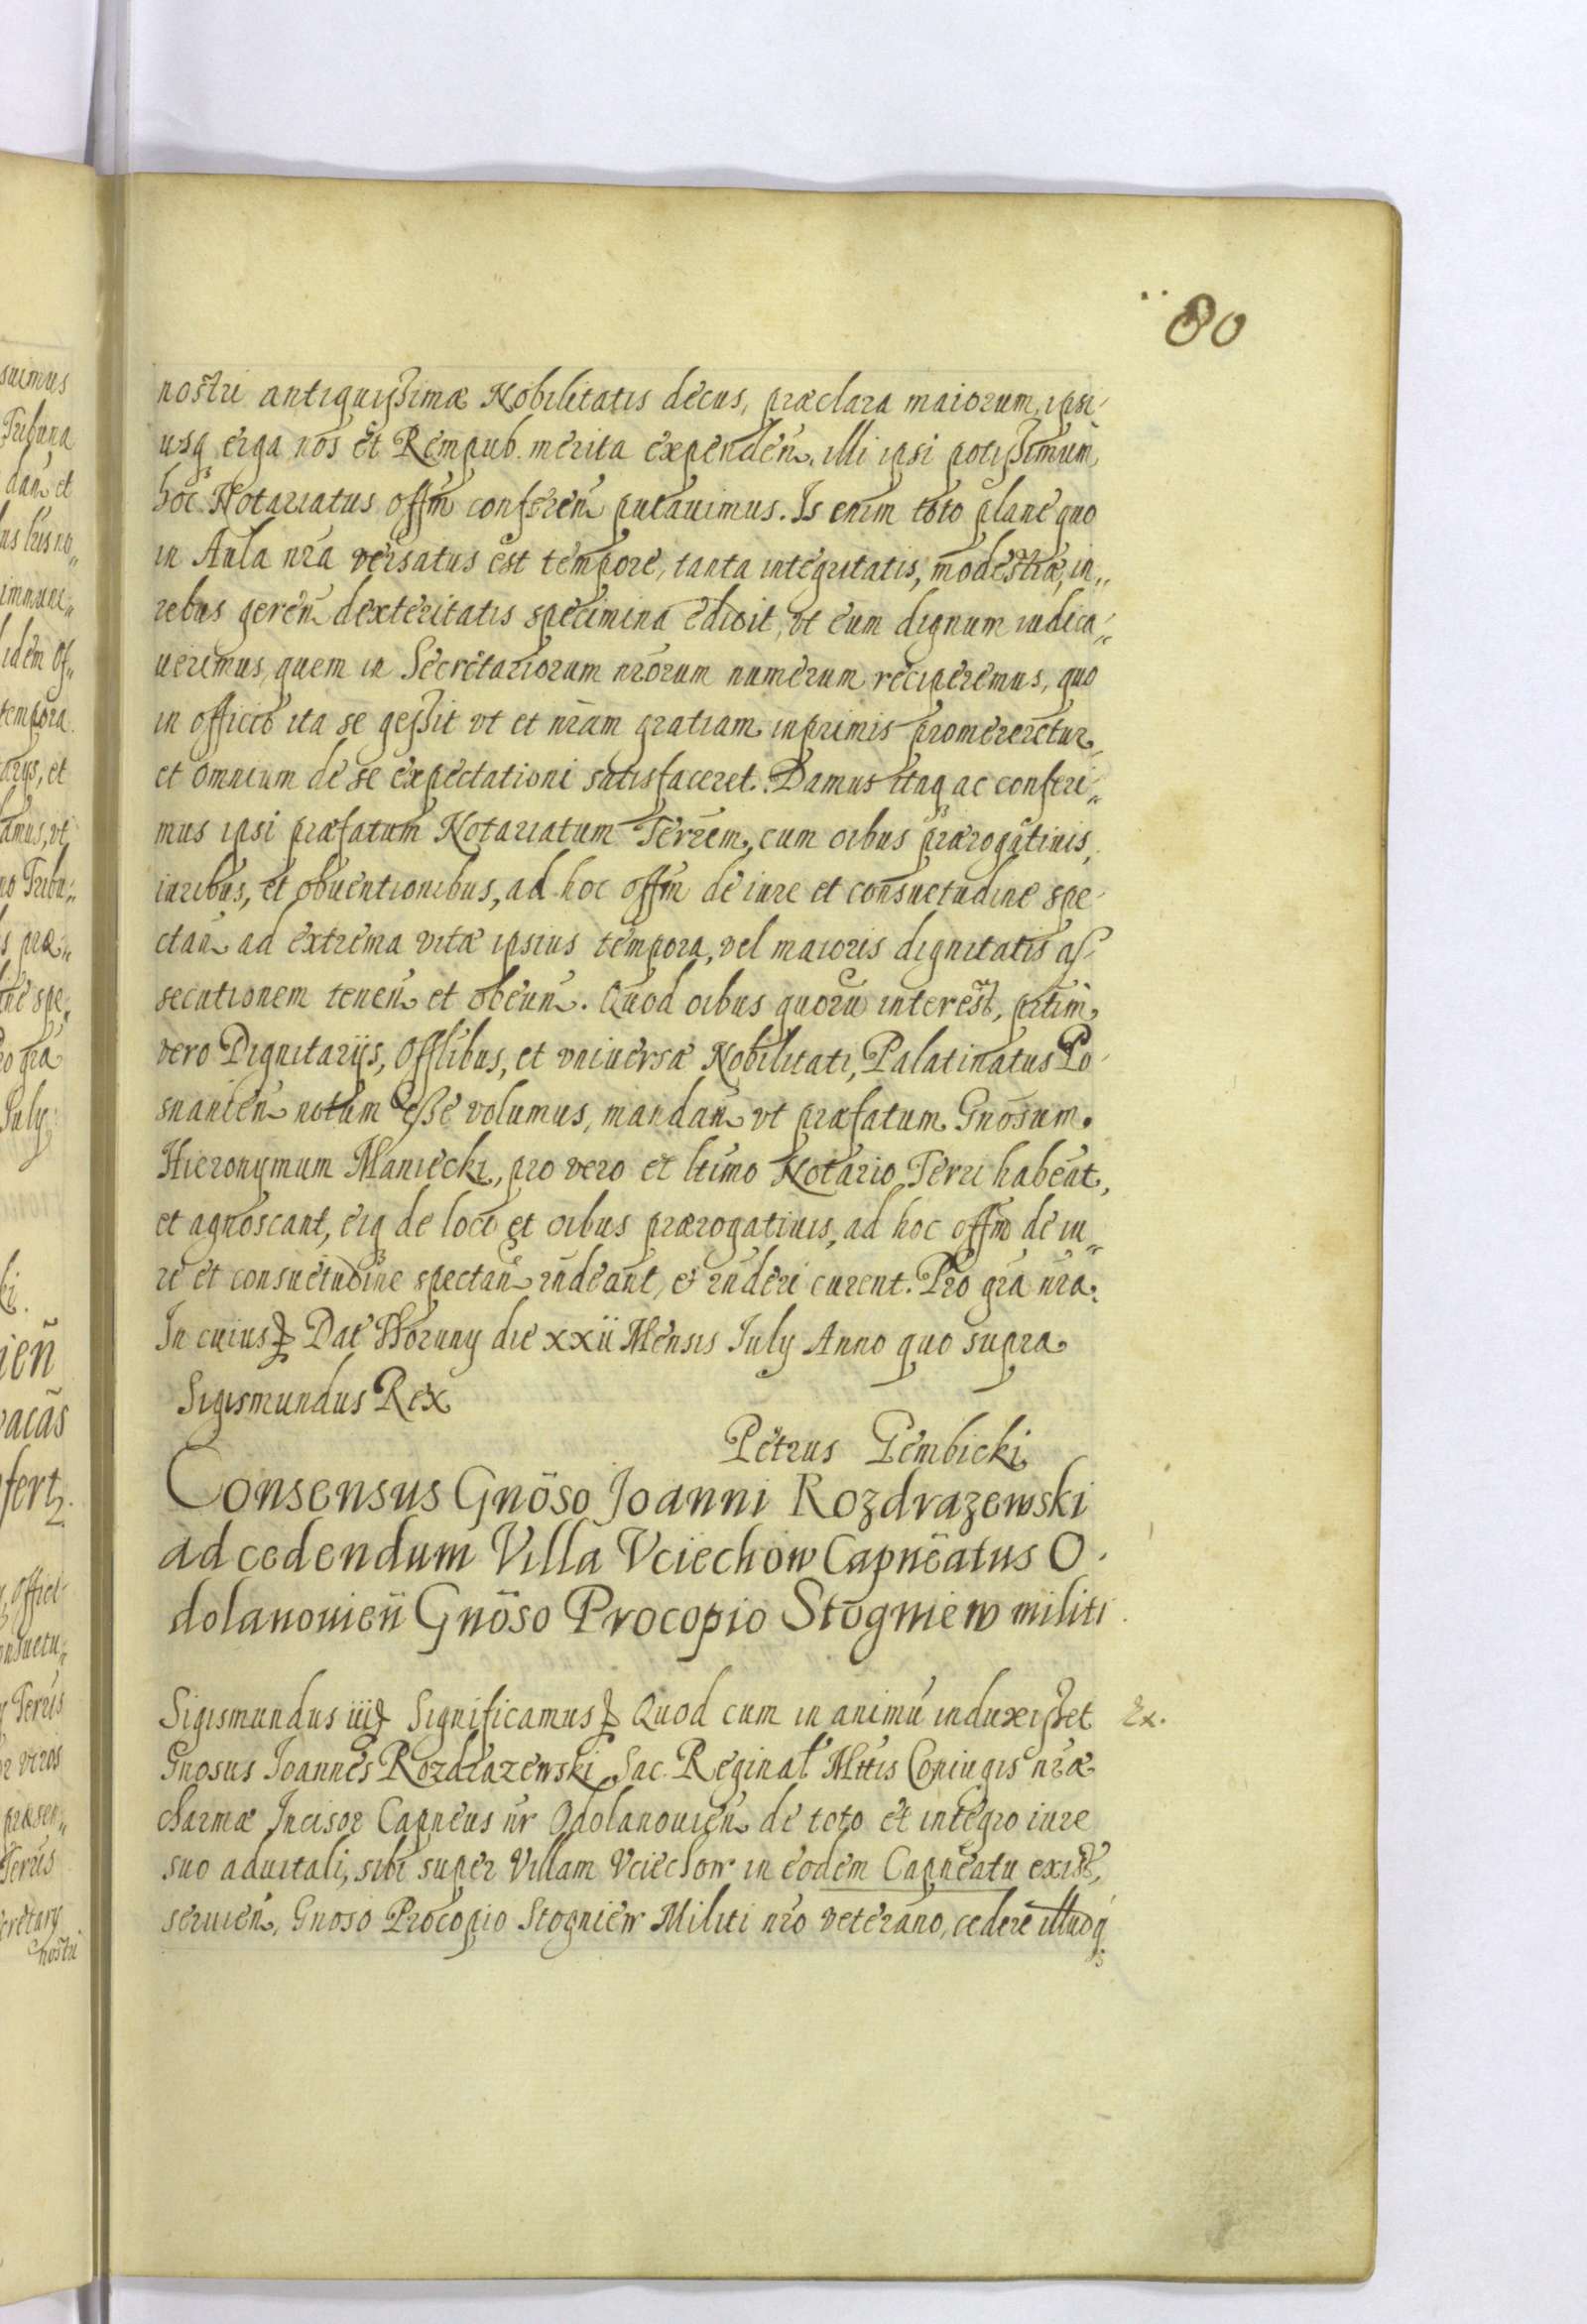 80
nostri antiquissimæ Nobilitatis decus, præclara maiorum, ipsi-
usq̃ erga nos et Rempub. merita expendeñ. illi ipsi potissimum
hoc Notariatus offm̃ confereñ putauimus. Is enim toto plane quo
in Aula nr̃a versatus est tempore, tanta integritatis, modestiæ, in„
rebus gereñ dexteritatis specimina edidit, vt eum dignum iudica„
uerimus, quem in Secretariorum nr̃orum numerum reciperemus, quo
in officio ita se gessit vt et nr̃am gratiam inprimis promereretur,
et omnium de se expectationi satisfaceret. Damus itaq̃ ac conferi„
mus ipsi præfatum Notariatum Terrem, cum oibus prærogatiuis,
iuribus, et obuentionibus, ad hoc offm̃ de iure et consuetudine spe-
ctañ ad extrema vitæ ipsius tempora, vel maioris dignitatis as-
secutionem teneñ et obeuñ. Quod oibus quorũ interest, p̃rtim
vero Dignitarijs, Offlibus, et vniuersæ Nobilitati, Palatinatus Po-
snanieñ notum esse volumus, mandañ vt præfatum Gnõsum
Hieronymum Maniecki, pro vero et ltimo Notario Terri habeat,
et agnoscant, eiq̃ de loco et oibus prærogatiuis, ad hoc offm̃ de iu„
re et consuetudine spectañ rñdeant, et rñderi curent. Pro gr̃a nr̃a.
In cuius Dat Woruny die xxii Mensis July Anno quo supra
Sigismundus Rex
Petrus Gembicki
Consensus Gnõso Joanni Rozdrazewski
ad cedendum Villa Vciechow Capneatus O-
dolanouieñ Gnõso Procopio Stogniew militi
Sigismundus iii Significamus Quod cum in animũ induxisset
Ex.
Gnosus Joannes Rozdrazewski Sac. Reginal Mttis Coniugis nr̃æ
charmæ Incisor Capneus nr̃ Odolanouieñ de toto et integro iure
suo aduitali, sibi super Villam Vciechow in eodem Capneatu exist,
seruieñ, Gnoso Procopio Stogniew Militi nr̃o veterano, cedere illudq̃